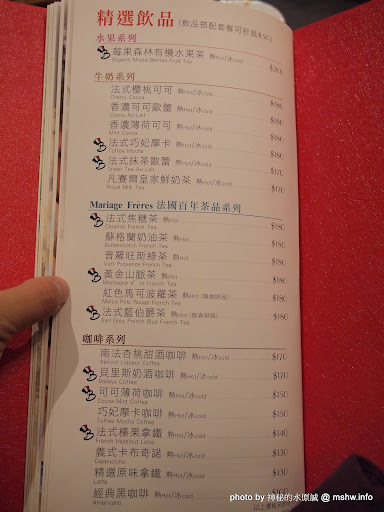 精選飲品 (飲品搭配套餐可折抵$50)
水果系列
莓果森林有機水果茶 熱Hot/冰cold $200
Organic Mixed Berries Fruit Tea
牛奶系列
法式櫻桃可可 熱Hot/冰cold $180
Cherry Cocoa
香濃可可歐蕾 熱Hot/冰cold $180
Cocoa Au Lait
香濃薄荷可可 熱Hot/冰cold $180
Mint Cocoa
法式巧妃摩卡 熱Hot/冰cold $180
Toffee Mocha
法式抹茶歐蕾 熱Hot/冰cold $170
Green Tea Au Lait
凡賽爾皇家鮮奶茶 熱Hot/冰cold $170
Royal Milk Tea
Mariage Frères 法國百年茶品系列
法式焦糖茶 熱Hot $180
Caramel French Tea
蘇格蘭奶油茶 熱Hot $180
Butterscotch French Tea
普羅旺斯綠茶 熱Hot $180
Vert Provence French Tea
黃金山脈茶 熱Hot $180
Montagne d'or French Tea
紅色馬可波羅茶 熱Hot (無咖啡因) $180
Marco Polo Rouge French Tea
法式藍伯爵茶 熱Hot $180
Earl Grey French Blue French Tea
咖啡系列
南法杏桃甜酒咖啡 熱Hot/冰cold $170
Apricot Liqueur Coffee
貝里斯奶酒咖啡 熱Hot/冰cold $170
Baileys Coffee
可可薄荷咖啡 熱Hot/冰cold $150
Cocoa Mint Coffee
巧妃摩卡咖啡 熱Hot/冰cold $150
Toffee Mocha Coffee
法式榛果拿鐵 熱Hot/冰cold $140
French Hazelnut Latte
義式卡布奇諾 熱Hot/冰cold $130
Cappuccino
精選原味拿鐵 熱Hot/冰cold $130
Latte
經典黑咖啡 熱Hot/冰cold
Americano
photo by 神秘的水原誠 @ mshw.info